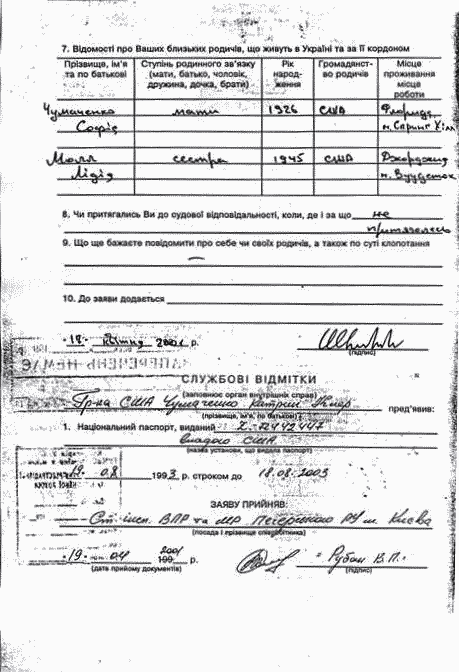 7. Відомості про Ваших близьких родичів, що живуть в Україні та за її кордоном
Прізвище, ім'я та по батькові
Ступінь родинного зв'язку (мати, батько, чоловік, дружина, дочка, брати)
Рік народ-ження
Громадянст-во родичів
Місце проживання місце роботи
Чумаченко мати 1926 США Флорида
Софія м. Спринг Хілл
Молл сестра 1945 США Джорджия
Лідія м. Вудсток
8. Чи притягались Ви до судової відповідальності, коли, де і за що не
притягалась
9. Що ще бажаєте повідомити про себе чи своїх родичів, а також по суті клопотання
—
10. До заяви додається
"18" квітня 2001 р.
(підпис)
ЗАПЕРЕЧЕНЬ НЕМАЄ
СЛУЖБОВІ ВІДМІТКИ
(заповнює орган внутрішніх справ)
Гр-ка США Чумаченко Катрин Клер пред'явив:
(прізвище, ім'я, по батькові)
1. Національний паспорт, виданий Z-7242447
владою США
(назва установи, що видала паспорт)
"19" 08 1993 р. строком до 18.08-2003
ЗАЯВУ ПРИЙНЯВ:
Ст. інсп. ВПР та МР Печерського РУ м. Києва
(посада і прізвище співробітника)
"19" 04 2001 199 р. Рубан В.П.
(дата прийому документів) (підпис)